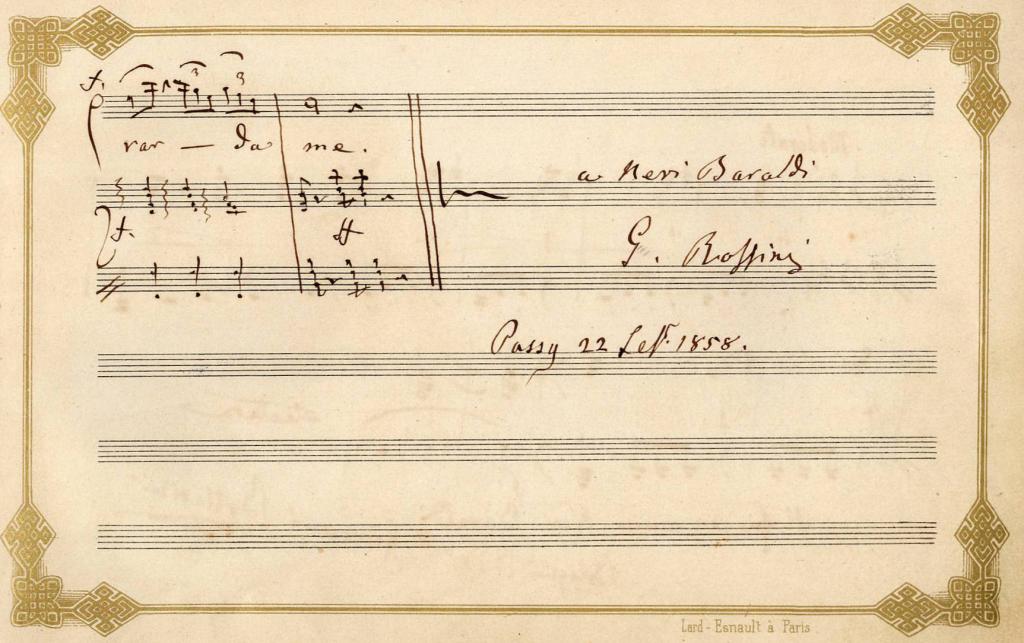 f.
3 3
var — da me.
a Neri Baraldi
f. ff
G. Rossini
Passy 22 Sett. 1858.
Lard-Esnault à Paris